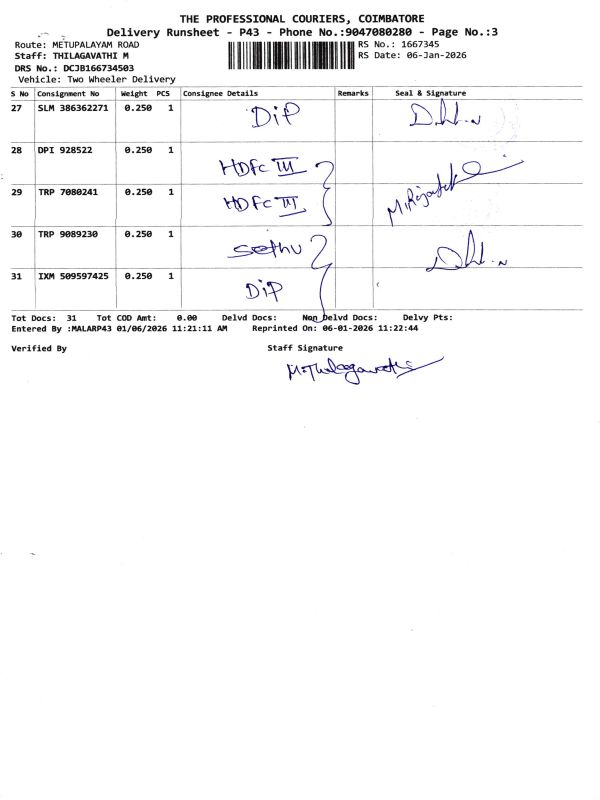 THE PROFESSIONAL COURIERS, COIMBATORE
Delivery Runsheet - P43 - Phone No.:9047080280 - Page No.:3
Route: METUPALAYAM ROAD RS No.: 1667345
Staff: THILAGAVATHI M RS Date: 06-Jan-2026
DRS No.: DCJB166734503
Vehicle: Two Wheeler Delivery
S No Consignment No Weight PCS Consignee Details Remarks Seal & Signature
27 SLM 386362271 0.250 1 DiP
28 DPI 928522 0.250 1 HDFC III
29 TRP 7080241 0.250 1 HDFC III
30 TRP 9089230 0.250 1 Sethu
31 IXM 509597425 0.250 1 DiP
Tot Docs: 31 Tot COD Amt: 0.00 Delvd Docs: Non Delvd Docs: Delvy Pts:
Entered By :MALARP43 01/06/2026 11:21:11 AM Reprinted On: 06-01-2026 11:22:44
Verified By Staff Signature
M.Thilagavathi